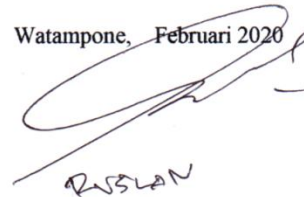 Watampone, Februari 2020
RUSLAN